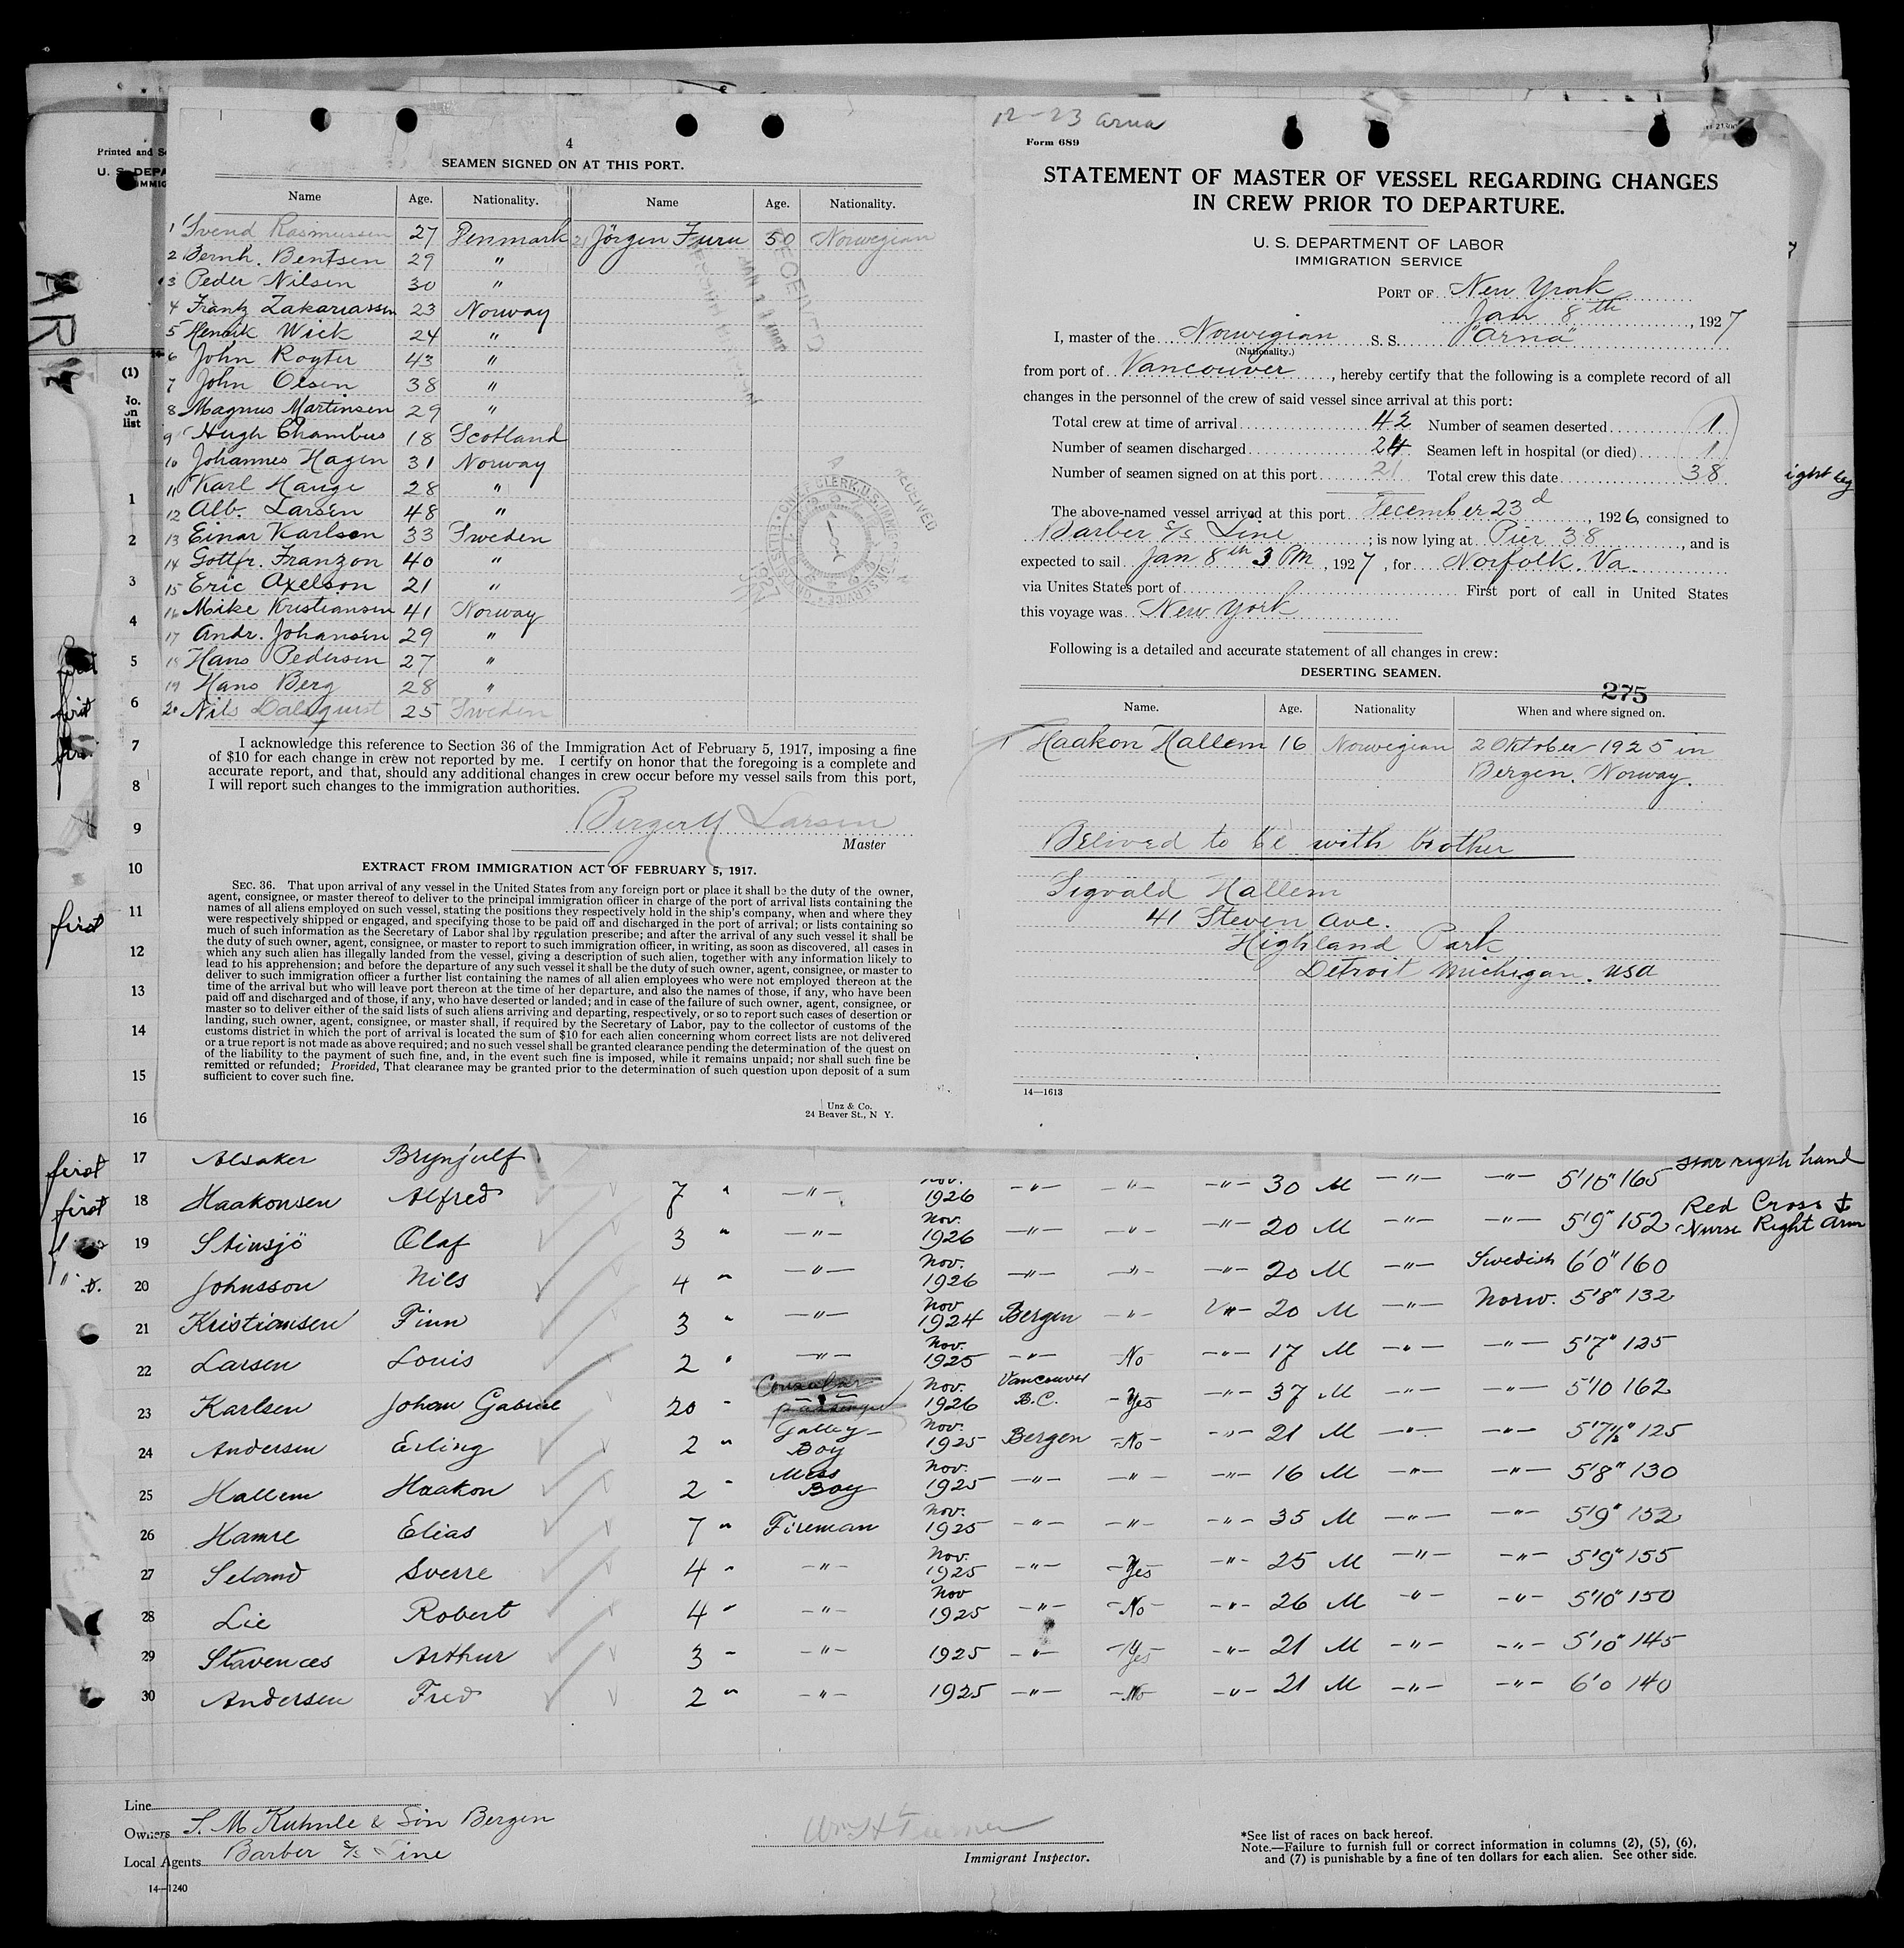 12-23 Arna
4
SEAMEN SIGNED ON AT THIS PORT.
Name Age. Nationality. Name Age. Nationality.
1 Svend Rasmussen 27 Denmark 21 Jörgen Furu 50 Norwegian
2 Bernh. Bentsen 29 "
3 Peder Nilsen 30 "
4 Frantz Zakariassen 23 Norway
5 Henrik Wick 24 "
6 John Royter 43 "
7 John Olsen 38 "
8 Magnus Martinsen 29 "
9 Hugh Chambus 18 Scotland
10 Johannes Hagen 31 Norway
11 Karl Hauge 28 "
12 Alb. Larsen 48 "
13 Einar Karlson 33 Sweden
14 Gottfr. Franzon 40 "
15 Eric Axelson 21 "
16 Mike Kristiansen 41 Norway
17 Andr. Johansen 29 "
18 Hans Pedersen 27 "
19 Hans Berg 28 "
20 Nils Dalquist 25 Sweden
RECEIVED
I acknowledge this reference to Section 36 of the Immigration Act of February 5, 1917, imposing a fine
of $10 for each change in crew not reported by me. I certify on honor that the foregoing is a complete and
accurate report, and that, should any additional changes in crew occur before my vessel sails from this port,
I will report such changes to the immigration authorities.
Larsen
Master
EXTRACT FROM IMMIGRATION ACT OF FEBRUARY 5, 1917.
SEC. 36. That upon arrival of any vessel in the United States from any foreign port or place it shall be the duty of the owner,
agent, consignee, or master thereof to deliver to the principal immigration officer in charge of the port of arrival lists containing the
names of all aliens employed on such vessel, stating the positions they respectively hold in the ship's company, when and where they
were respectively shipped or engaged, and specifying those to be paid off and discharged in the port of arrival; or lists containing so
much of such information as the Secretary of Labor shal lby regulation prescribe; and after the arrival of any such vessel it shall be
the duty of such owner, agent, consignee, or master to report to such immigration officer, in writing, as soon as discovered, all cases in
which any such alien has illegally landed from the vessel, giving a description of such alien, together with any information likely to
lead to his apprehension; and before the departure of any such vessel it shall be the duty of such owner, agent, consignee, or master to
deliver to such immigration officer a further list containing the names of all alien employees who were not employed thereon at the
time of the arrival but who will leave port thereon at the time of her departure, and also the names of those, if any, who have been
paid off and discharged and of those, if any, who have deserted or landed; and in case of the failure of such owner, agent, consignee, or
master so to deliver either of the said lists of such aliens arriving and departing, respectively, or so to report such cases of desertion or
landing, such owner, agent, consignee, or master shall, if required by the Secretary of Labor, pay to the collector of customs of the
customs district in which the port of arrival is located the sum of $10 for each alien concerning whom correct lists are not delivered
or a true report is not made as above required; and no such vessel shall be granted clearance pending the determination of the quest on
of the liability to the payment of such fine, and, in the event such fine is imposed, while it remains unpaid; nor shall such fine be
remitted or refunded; Provided, That clearance may be granted prior to the determination of such question upon deposit of a sum
sufficient to cover such fine.
Unz & Co.
24 Beaver St., N Y.
Form 689
STATEMENT OF MASTER OF VESSEL REGARDING CHANGES
IN CREW PRIOR TO DEPARTURE.
U. S. DEPARTMENT OF LABOR
IMMIGRATION SERVICE
PORT OF New York
Jan 8th, 1927
I, master of the Norwegian S. S. "Arna"
(Nationality.)
from port of Vancouver, hereby certify that the following is a complete record of all
changes in the personnel of the crew of said vessel since arrival at this port:
Total crew at time of arrival 42 Number of seamen deserted 1
Number of seamen discharged 24 Seamen left in hospital (or died) 1
Number of seamen signed on at this port 21 Total crew this date 38
The above-named vessel arrived at this port December 23d, 1926, consigned to
Barber S/S Line; is now lying at Pier 38, and is
expected to sail Jan 8th 3 PM, 1927, for Norfolk. Va.
via Unites States port of First port of call in United States
this voyage was New York
Following is a detailed and accurate statement of all changes in crew:
DESERTING SEAMEN.
275
Name. Age. Nationality When and where signed on.
Haakon Hallem 16 Norwegian 2 Oktober 1925 in
Bergen. Norway.
Belived to be with brother
Sigvald Hallem
41 Steven Ave.
Highland Park
Detroit Michigan. USA
14—1613
Printed and
(1)
No.
on
list
1
2
3
4
5
6
7
8
9
10
11
12
13
14
15
16
first
17 Alsaker Brynjulf star rigth hand
first 18 Haakonsen Alfred 7 " —"— 1926 —"— —"— —"— 30 M —"— —"— 5'10" 165
first 19 Stinsjö Olaf 3 " —"— Nov. 1926 —"— —"— —"— 20 M —"— —"— 5'9" 152 Red Cross Nurse Right Arm
20 Johnsson Nils 4 " —"— Nov. 1926 —"— —"— —"— 20 M —"— Swedish 6'0" 160
21 Kristiansen Finn 3 " —"— Nov 1924 Bergen —"— —"— 20 M —"— Norw. 5'8" 132
22 Larsen Louis 2 " —"— Nov. 1925 —"— No —"— 17 M —"— —"— 5'7" 125
23 Karlsen Johan Gabriel 20 " Nov. 1926 Vancouver B.C. Yes —"— 37 M —"— —"— 5'10 162
24 Andersen Erling 2 " Galley Boy Nov. 1925 Bergen No —"— 21 M —"— —"— 5'7½" 125
25 Hallem Haakon 2 " Mess Boy Nov. 1925 —"— —"— —"— 16 M —"— —"— 5'8" 130
26 Hamre Elias 7 " Fireman Nov. 1925 —"— —"— —"— 35 M —"— —"— 5'9" 152
27 Seland Sverre 4 " —"— Nov. 1925 —"— Yes —"— 25 M —"— —"— 5'9" 155
28 Lie Robert 4 " —"— Nov 1925 —"— No —"— 26 M —"— —"— 5'10" 150
29 Stavences Arthur 3 " —"— 1925 —"— Yes —"— 21 M —"— —"— 5'10" 145
30 Andersen Fred 2 " —"— 1925 —"— No —"— 21 M —"— —"— 6'0 140
Line
Owners S. M. Kuhnle & Son Bergen
Local Agents Barber S/S Line
14—1240
Immigrant Inspector.
*See list of races on back hereof.
Note.—Failure to furnish full or correct information in columns (2), (5), (6),
and (7) is punishable by a fine of ten dollars for each alien. See other side.